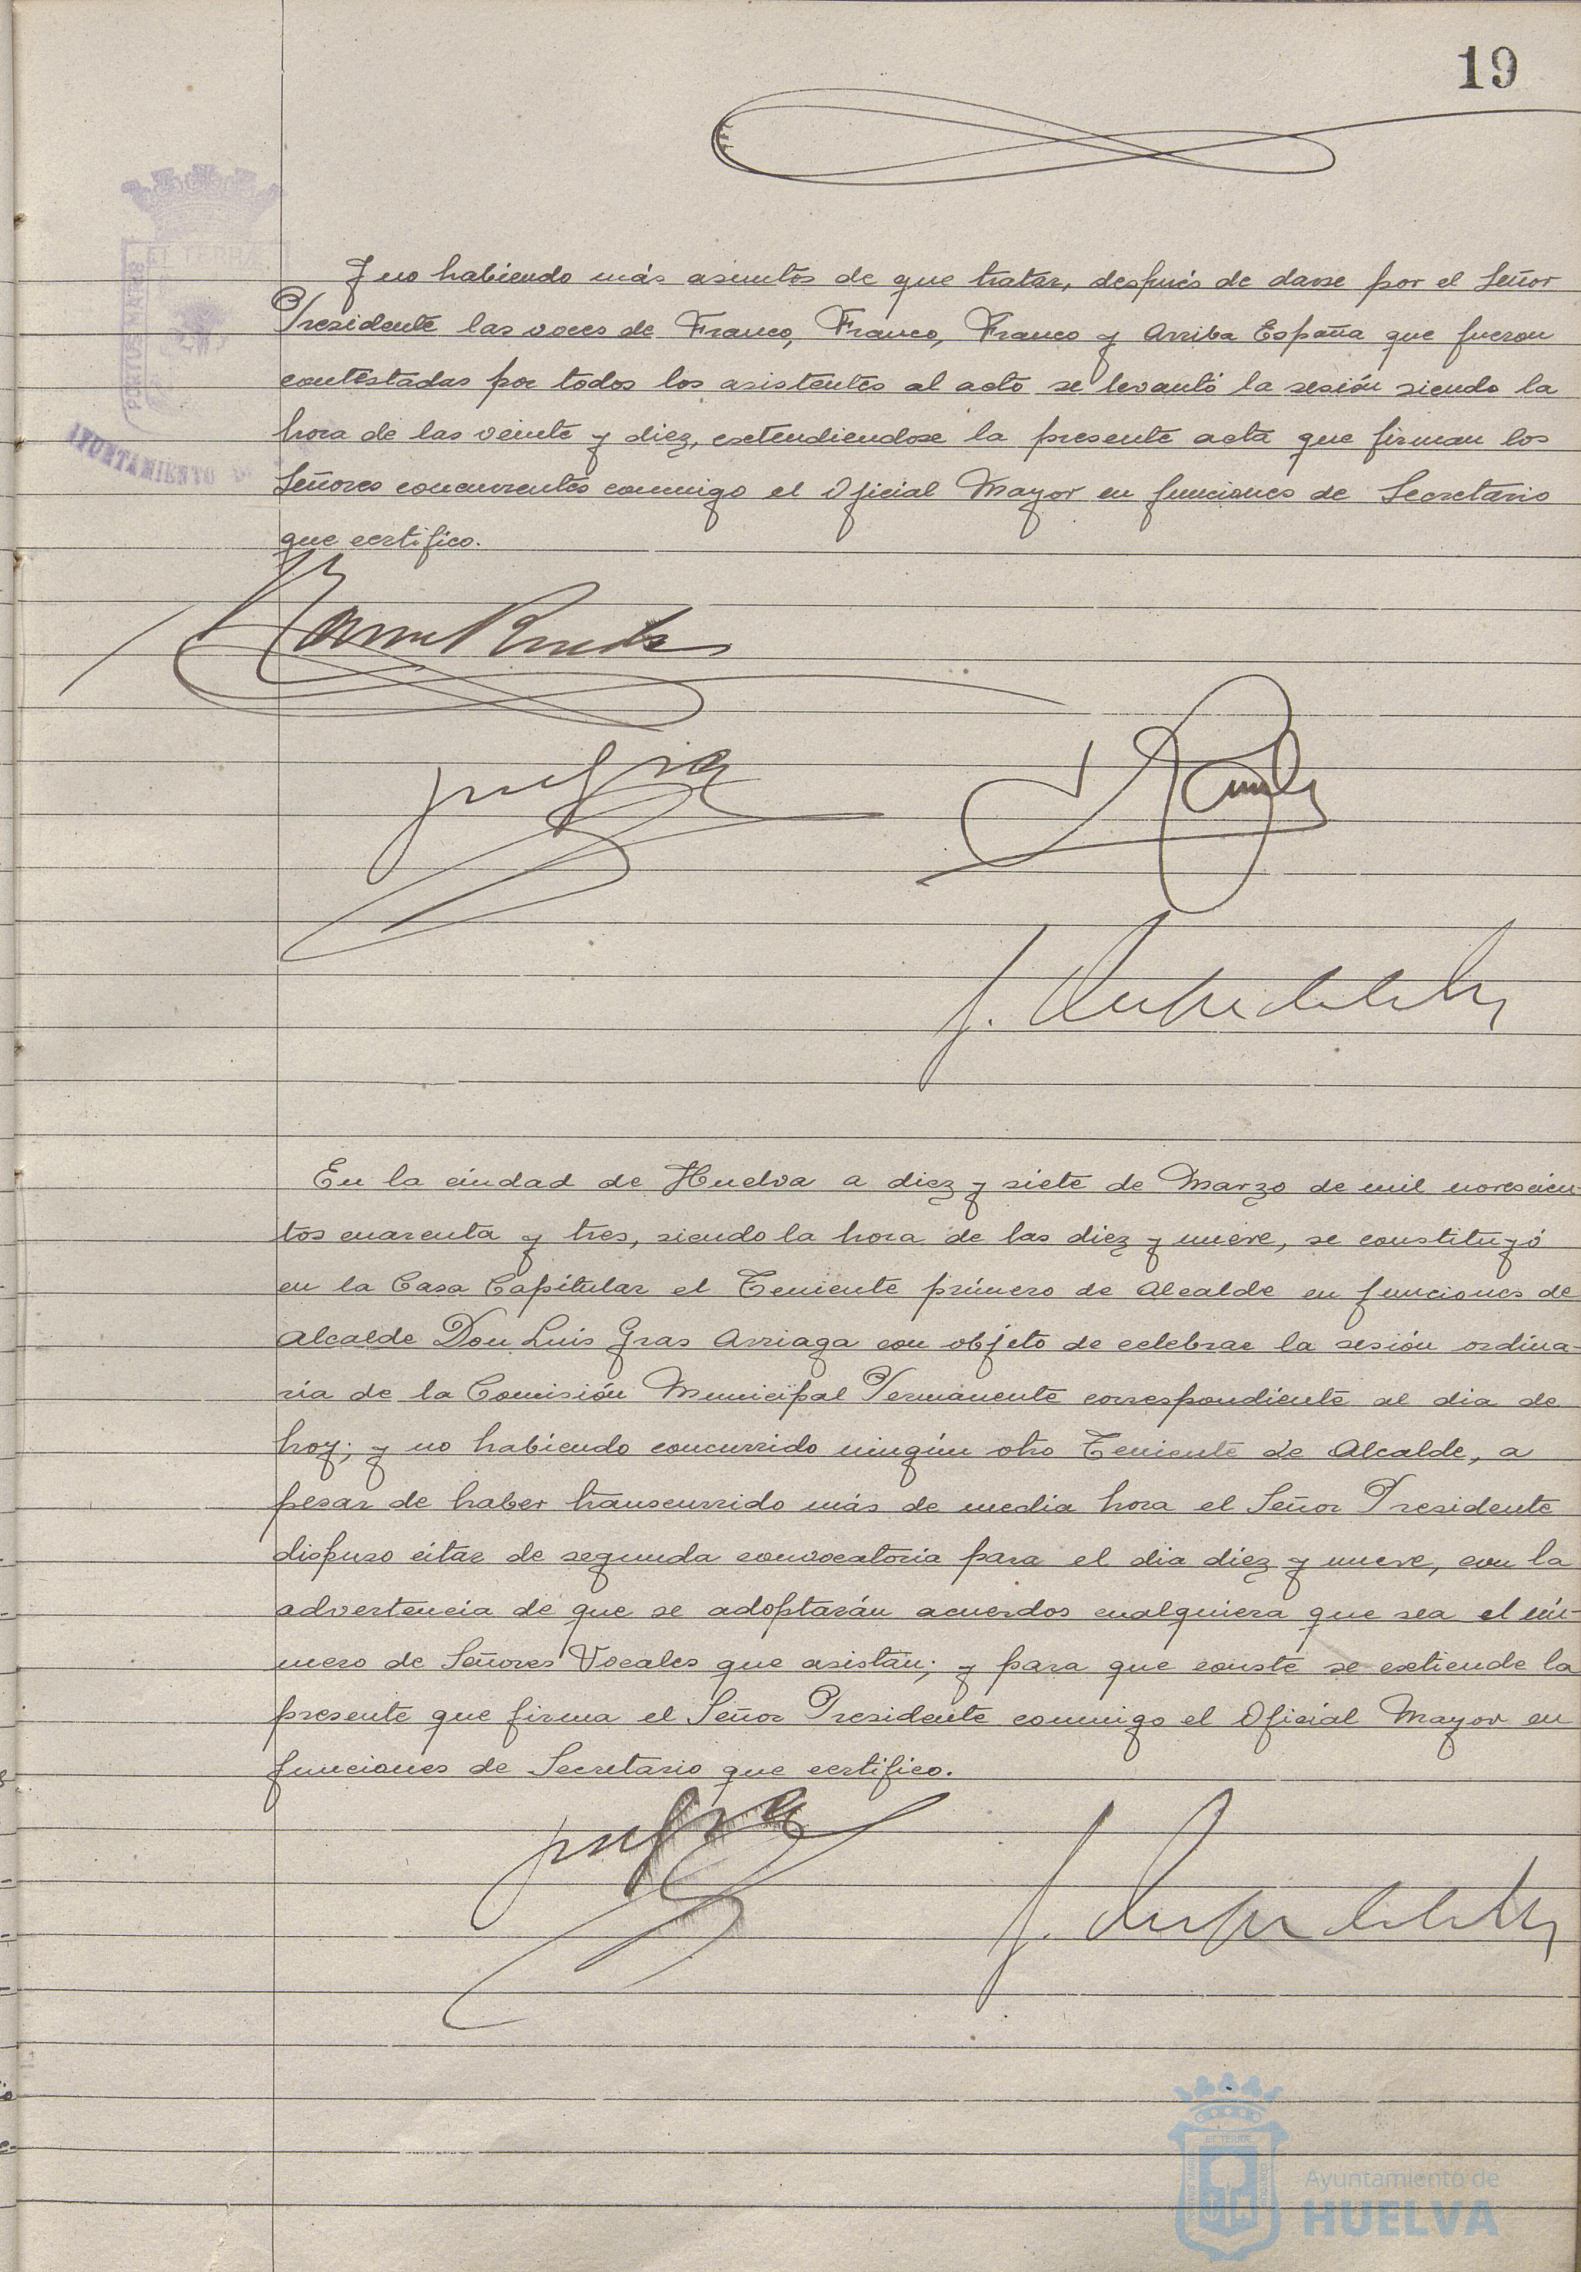 19
ET TERRÆ
PORTUS MARIS
AYUNTAMIENTO
Y no habiendo más asuntos de que tratar, después de darse por el Señor
Presidente las voces de Franco, Franco, Franco y Arriba España que fueron
contestadas por todos los asistentes al acto se levantó la sesión siendo la
hora de las veinte y diez, extendiendose la presente acta que firman los
Señores concurrentes conmigo el Oficial Mayor en funciones de Secretario
que certifico.
En la ciudad de Huelva a diez y siete de Marzo de mil novescien-
tos cuarenta y tres, siendo la hora de las diez y nueve, se constituyó
en la Casa Capitular el Teniente primero de Alcalde en funciones de
Alcalde Don Luis Gras Arriaga con objeto de celebrar la sesión ordina-
ria de la Comisión Municipal Permanente correspondiente al dia de
hoy; y no habiendo concurrido ningún otro Teniente de Alcalde, a
pesar de haber transcurrido más de media hora el Señor Presidente
dispuso citar de segunda convocatoria para el dia diez y nueve, con la
advertencia de que se adoptarán acuerdos cualquiera que sea el nú-
mero de Señores Vocales que asistan; y para que conste se extiende la
presente que firma el Señor Presidente conmigo el Oficial Mayor en
funciones de Secretario que certifico.
Ayuntamiento de
HUELVA